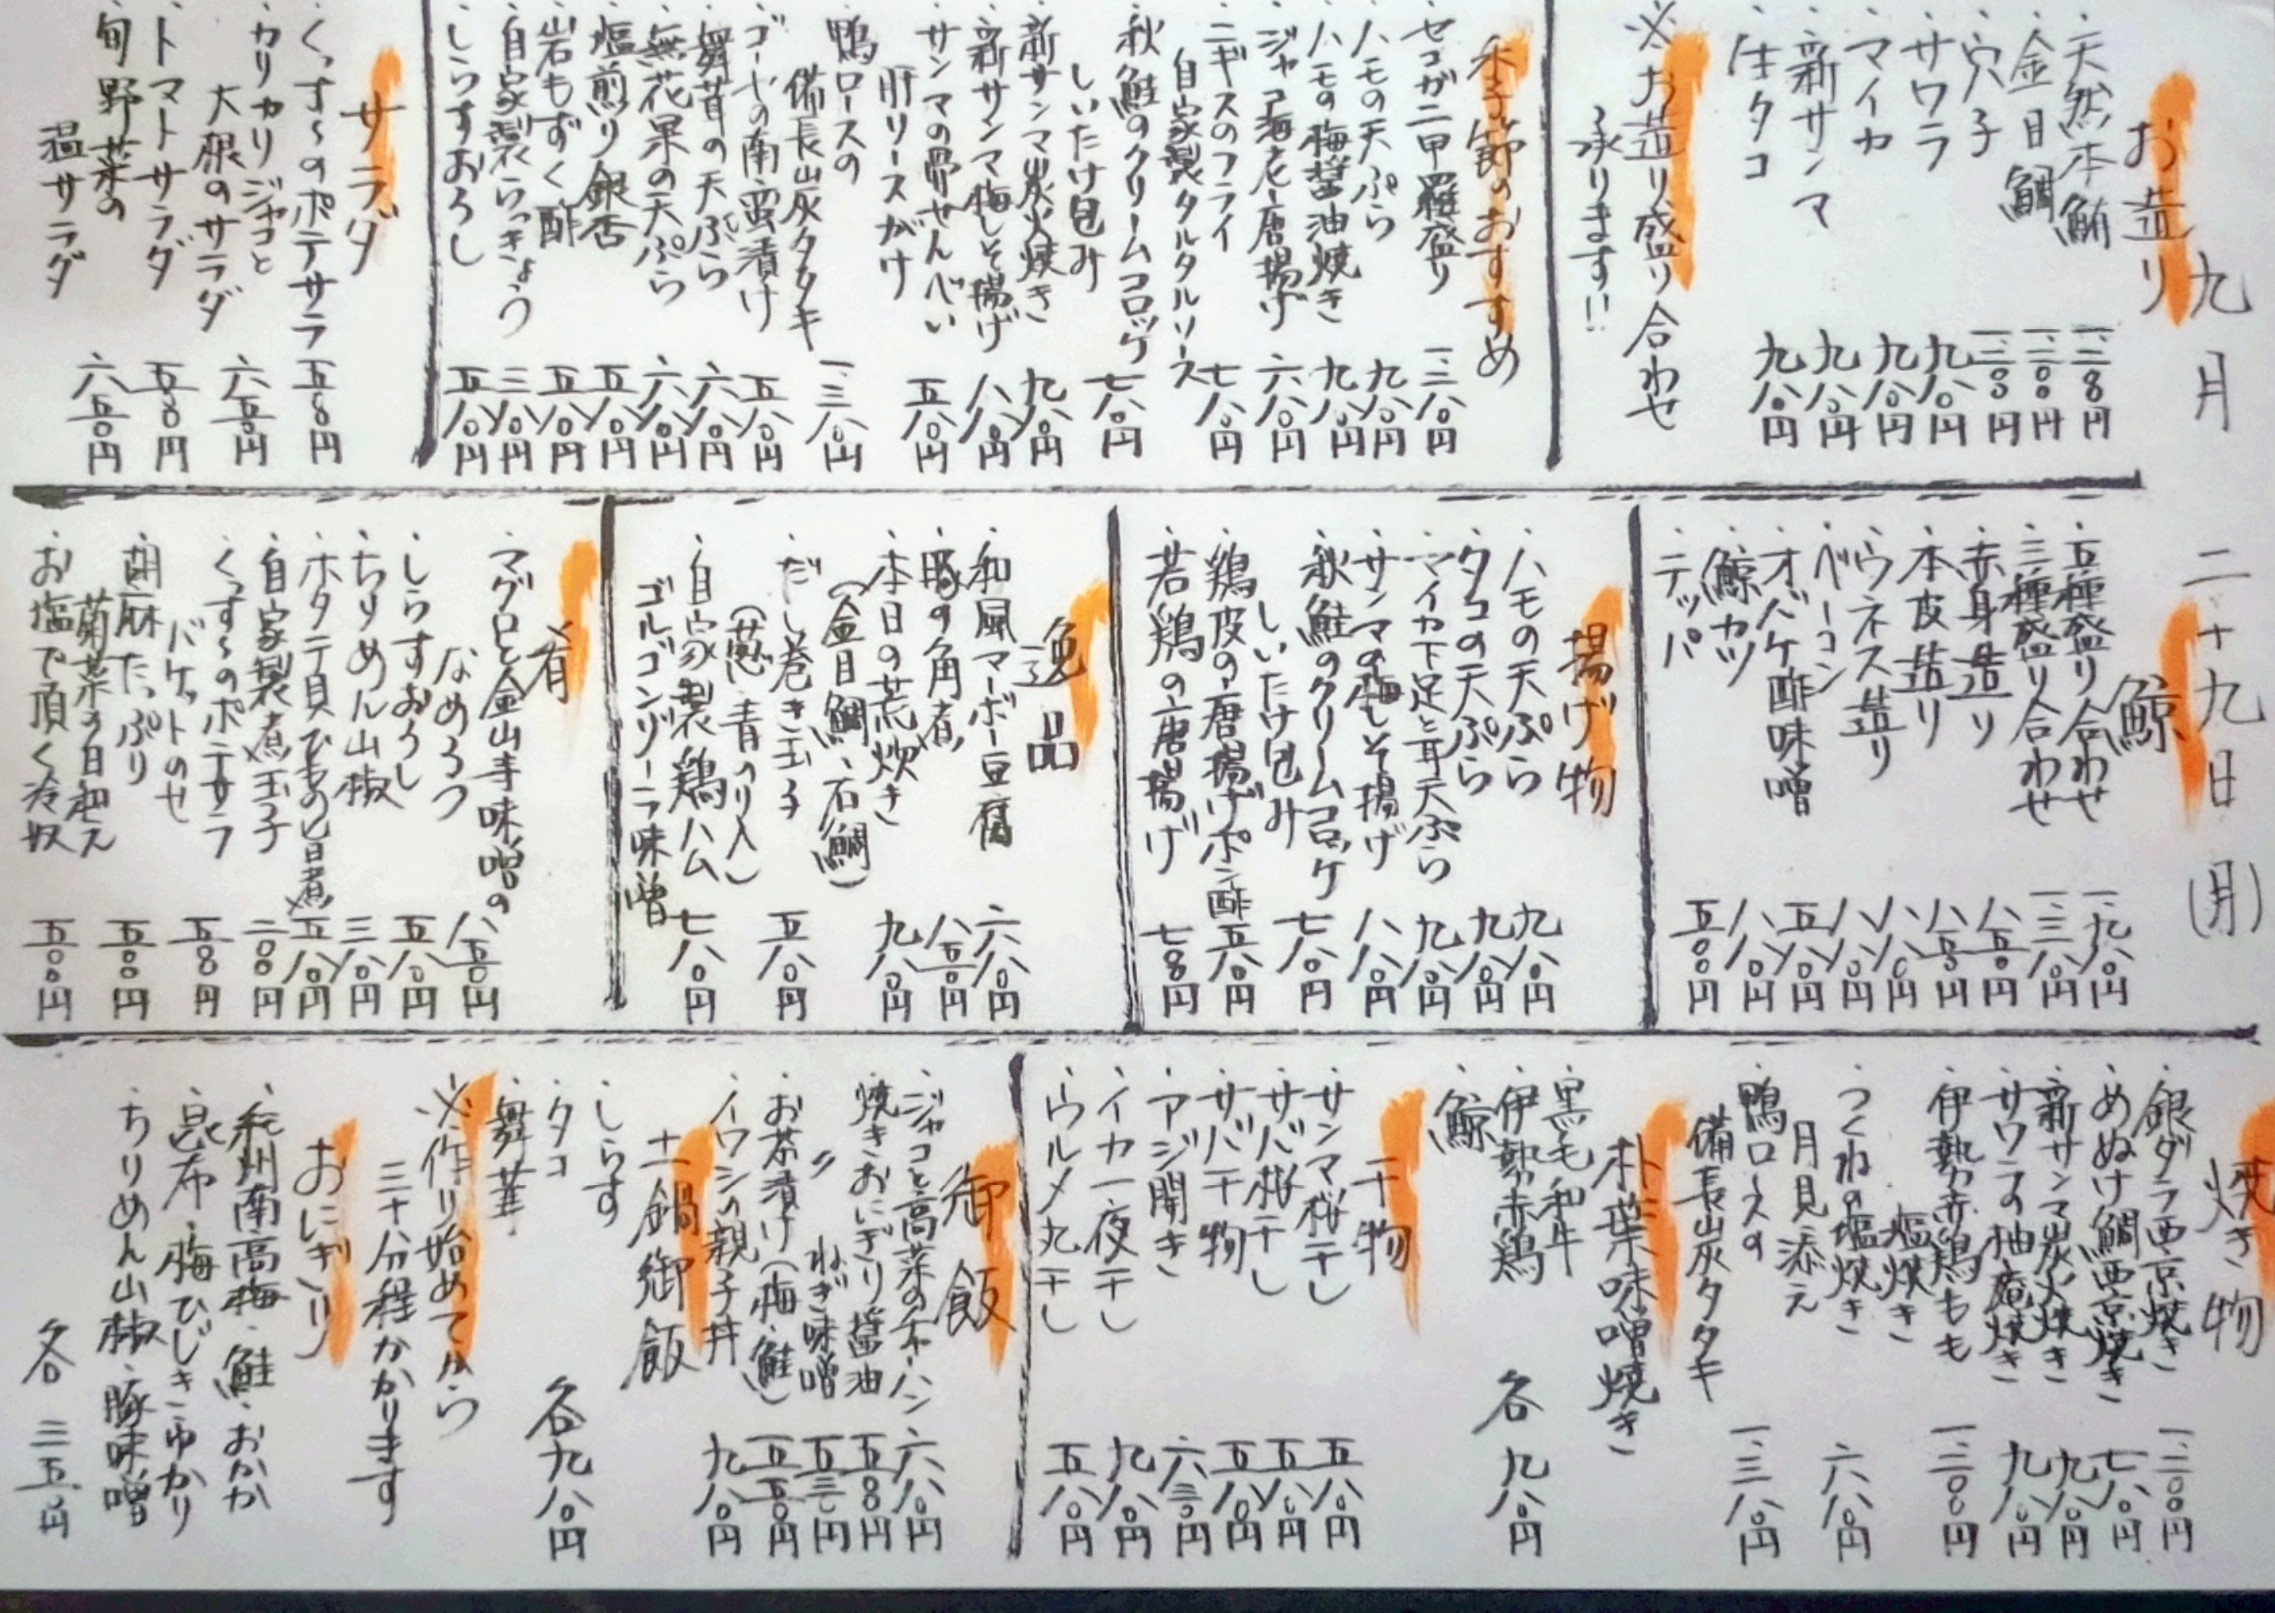 九月二十九日(月)
お造り
・天然本鮪 一、二八〇円
・金目鯛 一、二〇〇円
・穴子 一、二〇〇円
・サワラ 九八〇円
・マイカ 九八〇円
・新サンマ 九八〇円
・生タコ 九八〇円
※お造り盛り合わせ
承ります!!
季節のおすすめ
・セコガニ甲羅盛り 一、三八〇円
・ハモの天ぷら 九八〇円
・ハモの梅醤油焼き 九八〇円
・ジャコ海老唐揚げ 六八〇円
・ニギスのフライ
自家製タルタルソース 七八〇円
・秋鮭のクリームコロッケ
しいたけ包み 七八〇円
・新サンマ炭火焼き 九八〇円
・新サンマ梅しそ揚げ 八八〇円
・サンマの骨せんべい
肝リースがけ 五八〇円
・鴨ロースの
備長炭タタキ 一、三八〇円
・ゴーヤの南蛮漬け 五八〇円
・舞茸の天ぷら 六八〇円
・無花果の天ぷら 六八〇円
・塩煎り銀杏 五八〇円
・岩もずく酢 五八〇円
・自家製らっきょう 三八〇円
・しらすおろし 五八〇円
サラダ
・くっす〜のポテサラ 五八〇円
・カリカリジャコと
大根のサラダ 六五〇円
・トマトサラダ 五八〇円
・旬野菜の
温サラダ 六五〇円
鯨
・五種盛り合わせ 一、九八〇円
・三種盛り合わせ 一、三八〇円
・赤身造り 八五〇円
・本皮造り 八五〇円
・ウネス造り 八八〇円
・ベーコン 八八〇円
・オバケ酢味噌 五八〇円
・鯨カツ 八八〇円
・テッパ 五〇〇円
揚げ物
・ハモの天ぷら 九八〇円
・タコの天ぷら 九八〇円
・マイカ下足と耳天ぷら 九八〇円
・サンマの梅しそ揚げ 八八〇円
・秋鮭のクリームコロッケ
しいたけ包み 七八〇円
・鶏皮の唐揚げポン酢 五八〇円
・若鶏の唐揚げ 七八〇円
逸品
・和風マーボー豆腐 六八〇円
・豚の角煮 八五〇円
・本日の荒炊き 九八〇円
(金目鯛、石鯛)
・だし巻き玉子 五八〇円
(葱、青のり入)
・自家製鶏ハム 七八〇円
ゴルゴンゾーラ味噌
肴
・マグロと金山寺味噌の
なめろう 八五〇円
・しらすおろし 五八〇円
・ちりめん山椒 三八〇円
・ホタテ貝ひもの旨煮 五八〇円
・自家製煮玉子 二〇〇円
・くっす〜のポテサラ
バケットのせ 五八〇円
・胡麻たっぷり
菊菜の白和え 五〇〇円
・お塩で頂く冷奴 五〇〇円
焼き物
・銀ダラ西京焼き 一、二〇〇円
・めぬけ鯛西京焼き 七八〇円
・新サンマ炭火焼き 九八〇円
・サワラの柚庵焼き 九八〇円
・伊勢赤鶏もも
塩焼き 一、二〇〇円
・つくねの塩焼き
月見添え 六八〇円
・鴨ロースの
備長炭タタキ 一、三八〇円
朴葉味噌焼き
・黒毛和牛
・伊勢赤鶏
・鯨
各 九八〇円
干物
・サンマ桜干し 五八〇円
・サバ桜干し 五八〇円
・サバ干物 五八〇円
・アジ開き 六三〇円
・イカ一夜干し 九八〇円
・ウルメ丸干し 五八〇円
御飯
・ジャコと高菜のチャーハン 六八〇円
・焼きおにぎり醤油 五〇〇円
〃 ねぎ味噌 五三〇円
・お茶漬け(梅、鮭) 五五〇円
・イワシの親子丼 九八〇円
土鍋御飯
・しらす
・タコ
・舞茸
各九八〇円
※作り始めてから
三十分程かかります
おにぎり
・紀州南高梅・鮭・おかか
・昆布・梅ひじき・ゆかり
・ちりめん山椒・豚味噌
各 三五〇円